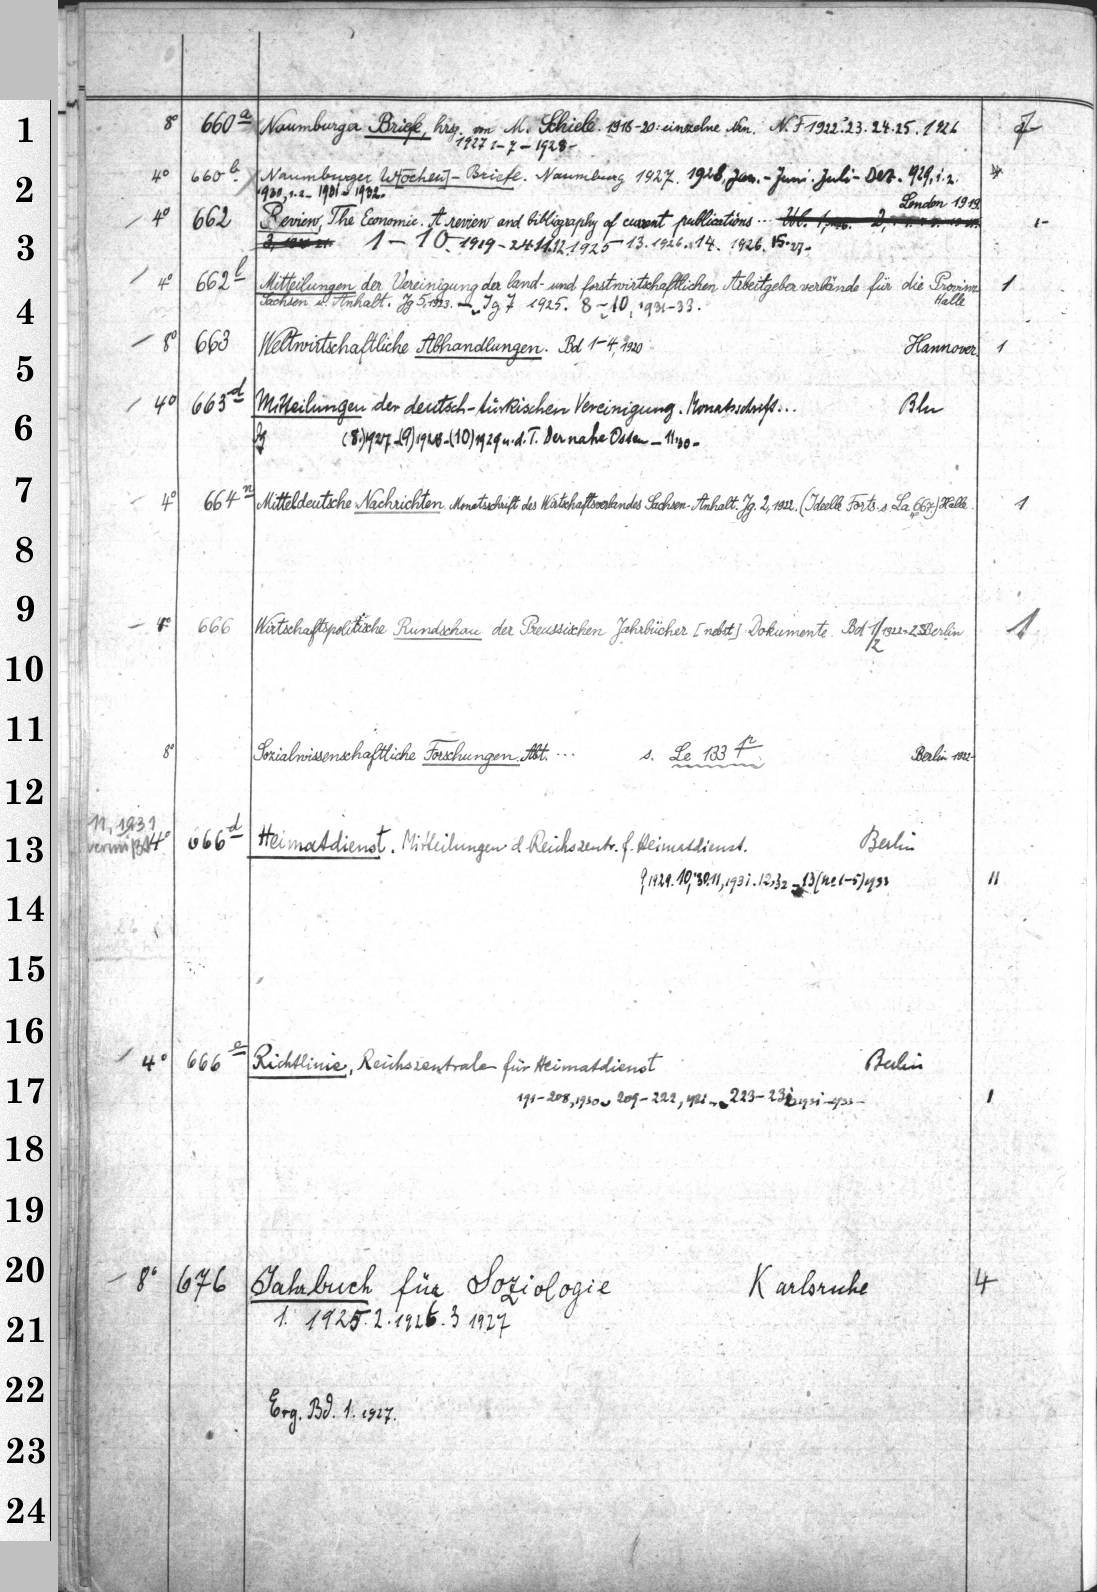 1
8° 660a Naumburger Briefe, hrsg. von M. Schiele. 1918-20: einzelne Nrn. N.F 1922. 23. 24. 25. 1926
1927 1-7-1928-
2
4° 660b Naumburger W[ochen]-Briefe. Naumburg 1927. 1928, Jan.-Juni. Juli-Dez. 929, 1.2.
1930, 1.2 - 1931 - 1932.
London 1919
4° 662 Review, The Economic. A review and bibliography of current publications ... 1-
3
1-10. 1919-24 11.12. 1925 - 13. 1926. 14. 1926. 15.27.
4° 662f Mitteilungen der Vereinigung der land- und forstwirtschaftlichen Arbeitgeberverbände für die Provinz 1
4
Sachsen u. Anhalt. Jg 5, 1923. - Jg 7 1925. 8-10, 1931-33. Halle
8° 663 Weltwirtschaftliche Abhandlungen. Bd 1-4, 1920 Hannover 1
5
4° 663d Mitteilungen der deutsch-türkischen Vereinigung. Monatsschrift... Bln
6
Jg (8.)1927-(9)1928-(10)1929 u. d. T. Der nahe Osten - 11.30-
7
4° 664n Mitteldeutsche Nachrichten. Monatsschrift des Wirtschaftsverbandes Sachsen-Anhalt. Jg. 2, 1922. (Ideelle Forts. s La 667) Halle 1
8
9
4° 666 Wirtschaftspolitische Rundschau der Preussischen Jahrbücher [nebst] Dokumente. Bd 1/2 1922-23 Berlin 1
10
11
8° Sozialwissenschaftliche Forschungen. Abt. ... s. Le 133 Berlin 1922-
12
11, 1931
vermißt
4° 666d Heimatdienst. Mitteilungen d Reichszentr. f. Heimatdienst. Berlin
13
9, 1929. 10, 30. 11, 1931. 12, 32 - 13 (No 1-5) 1933 11
14
15
16
4° 666e Richtlinie, Reichszentrale für Heimatdienst Berlin
17
191-208, 1930 209-222, 1931 223- 1931-1933- 1
18
19
20
8° 676 Jahrbuch für Soziologie Karlsruhe 4
21
1. 1925. 2. 1926. 3 1927
22
Erg. Bd. 1. 1927.
23
24